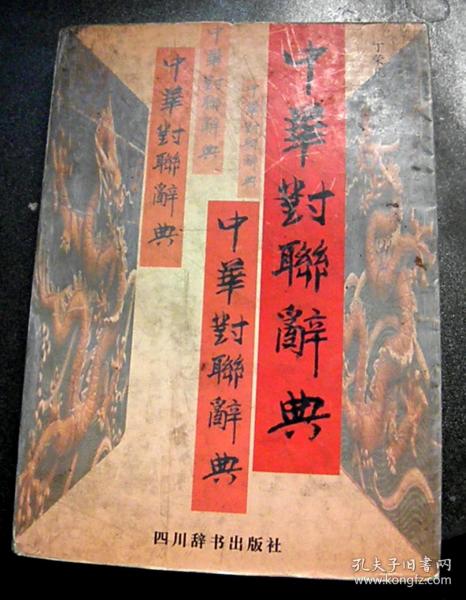 中華對聯辭典
中華對聯辭典
中華對聯辭典
中華對聯辭典
中華對聯辭典
丁荣
四川辞书出版社
孔夫子旧书网
www.kongfz.com